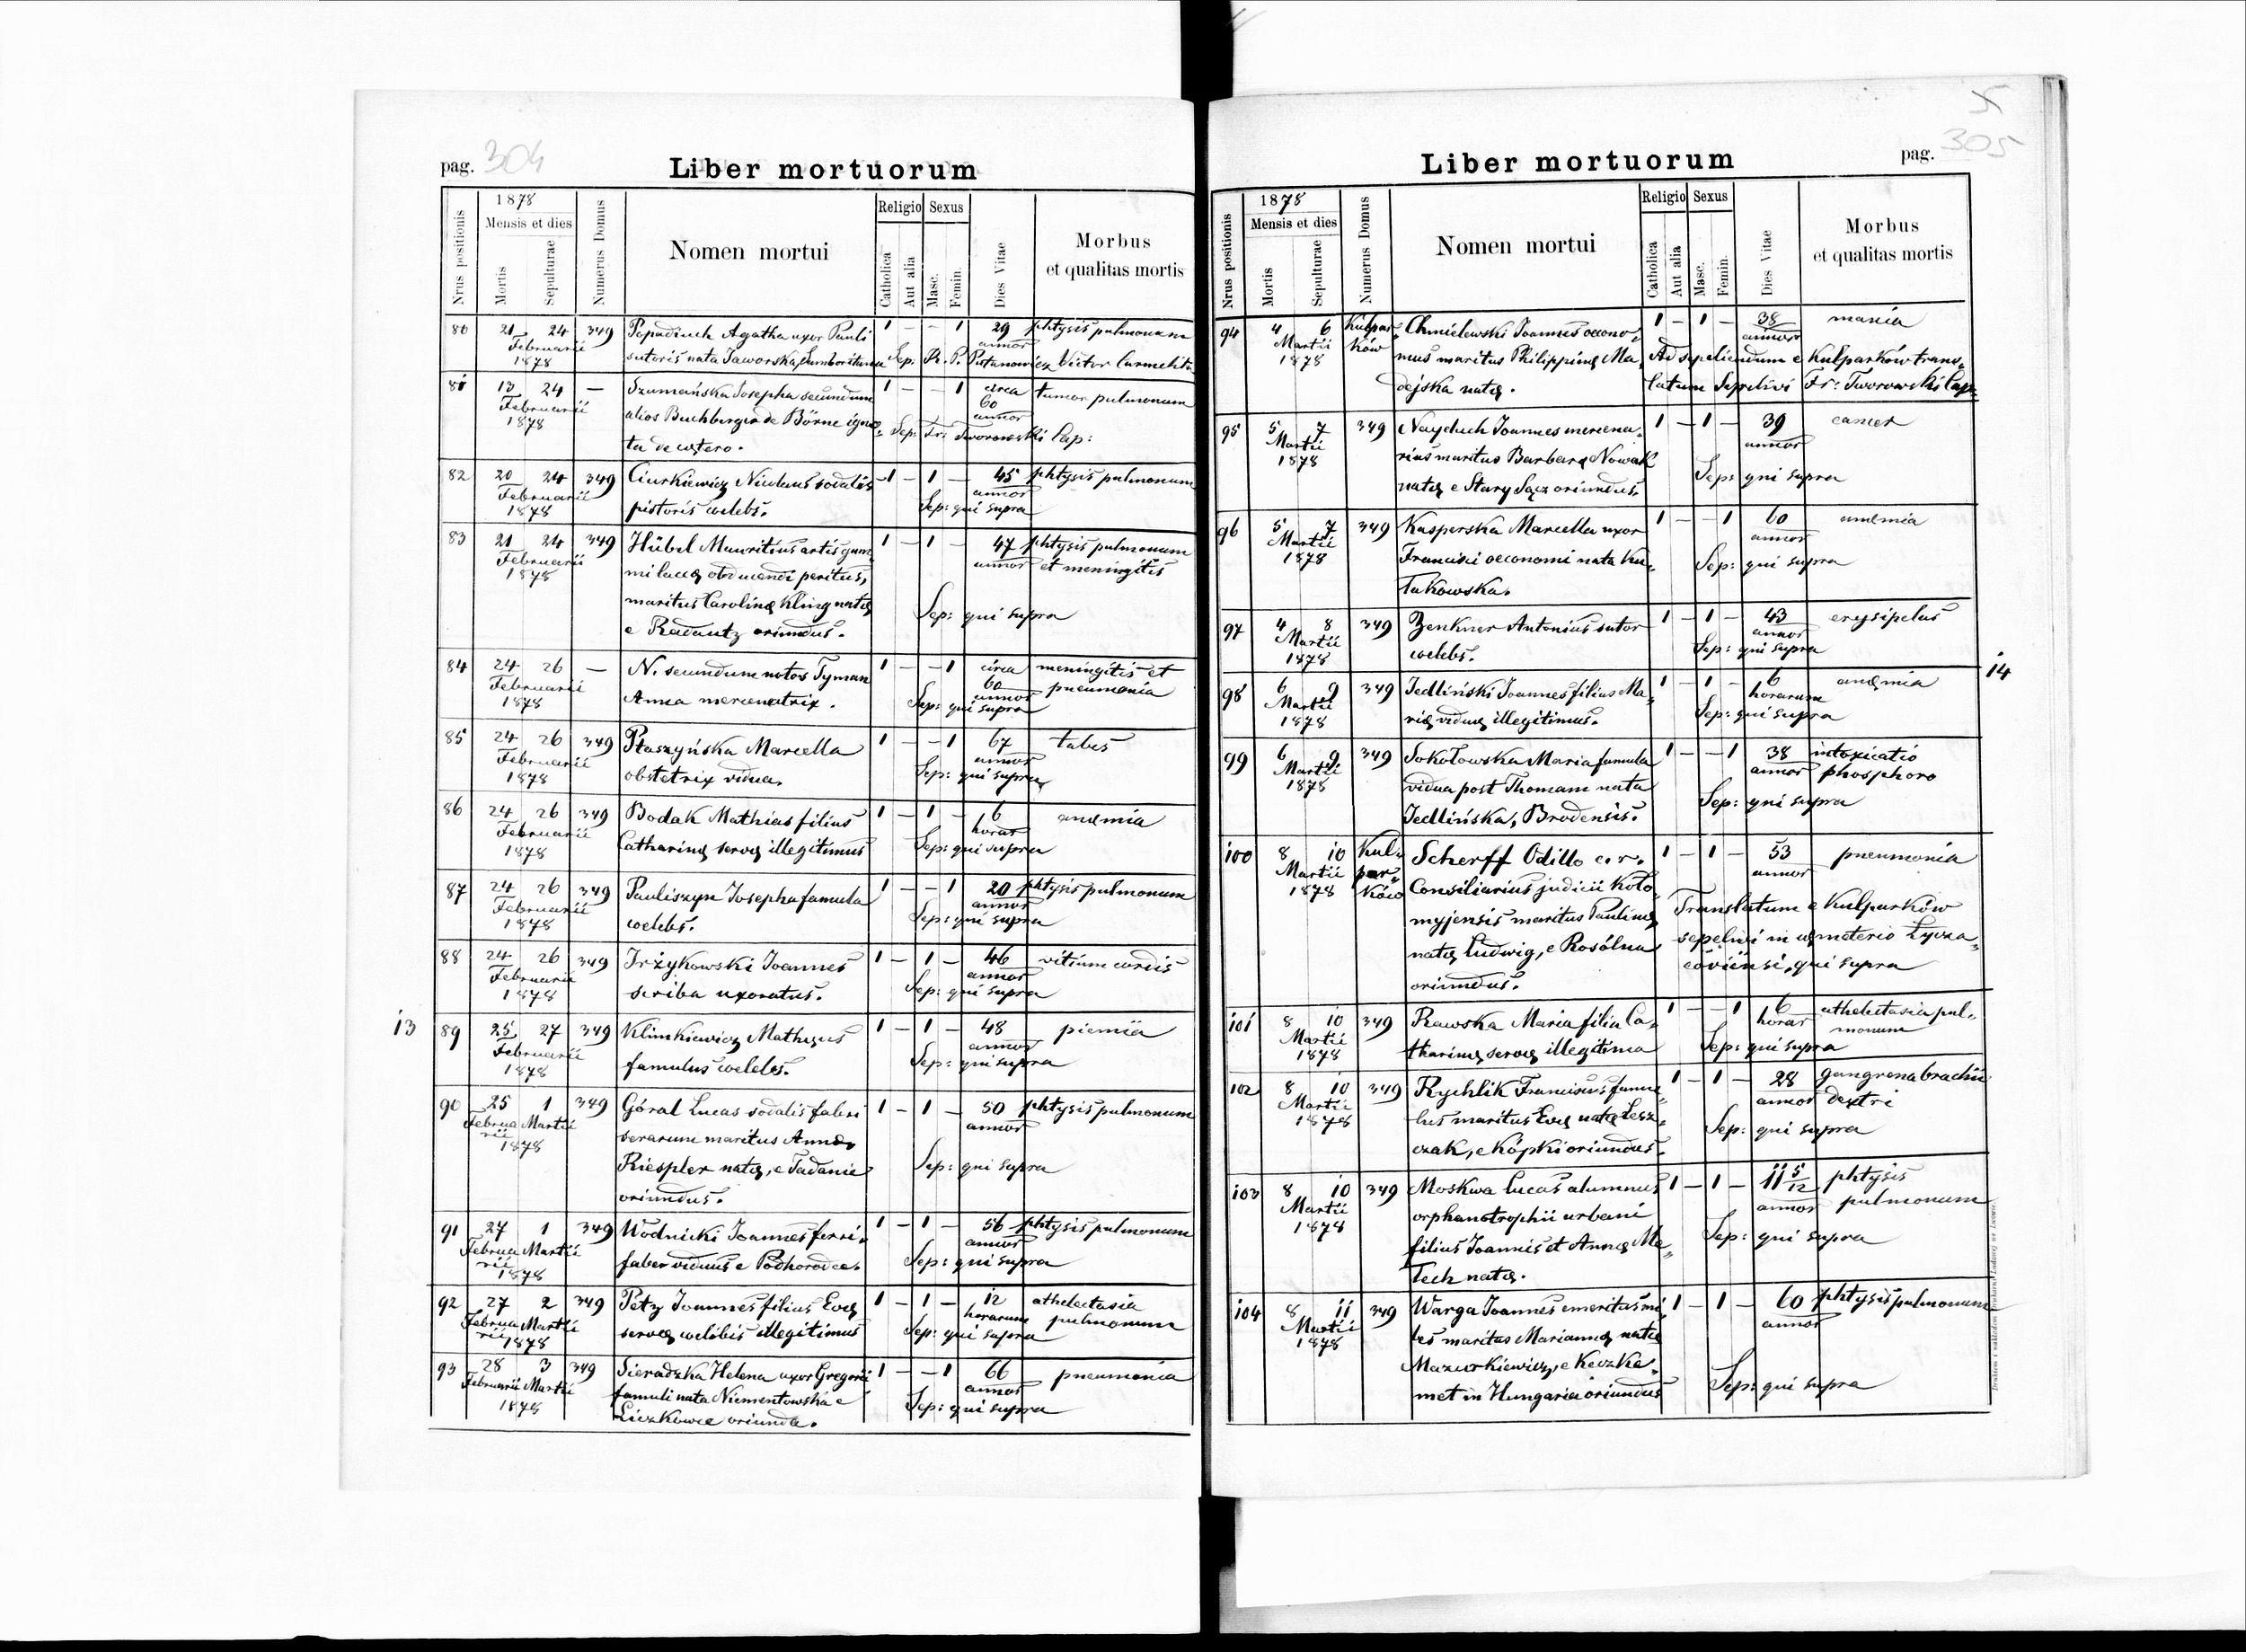 pag. 304
Liber mortuorum
Nrus positionis
1878
Mensis et dies
Mortis
Sepulturae
Numerus Domus
Nomen mortui
Religio
Catholica
Aut alia
Sexus
Masc.
Femin.
Dies Vitae
Morbus
et qualitas mortis
80 21 24 349 Popadiuk Agatha uxor Pauli 1 – – 1 29 phtysis pulmonum
Februarii annor
1878 sutoris nata Jaworska, Samboritana Sep: R. P. Pistanowicz Victor Carmelita
81 13 24 — Szumańska Josepha secundum 1 – – 1 circa tumor pulmonum
Februarii 60
1878 alios Buchberger de Börne igno- annor
Sep: Fr: Tworowski Cap:
ta de cętero.
82 20 24 349 Ciurkiewicz Nicolaus sodalis 1 – 1 – 45 phtysis pulmonum
Februarii annor
1878 pistoris coelebs. Sep: qui supra
83 21 24 349 Hübel Mauritius artis gum 1 – 1 – 47 phtysis pulmonum
Februarii annor et meningitis
1878 mi lacca obducendi peritus,
maritus Carolinę Kling natę Sep: qui supra
e Radautz oriundus.
84 24 26 — N. secundum notos Tyman 1 – – 1 circa meningitis et
Februarii 60 pneumonia
1878 Anna mercenatrix. annor
Sep: qui supra
85 24 26 349 Płaszyńska Marcella 1 – – 1 67 tabes
Februarii annor
1878 obstetrix vidua. Sep: qui supra
86 24 26 349 Bodak Mathias filius 1 – 1 – 6 anęmia
Februarii horar
1878 Catharinę servę illegitimus Sep: qui supra
87 24 26 349 Pauliszyn Josepha famula 1 – – 1 20 phtysis pulmonum
Februarii annor
1878 coelebs. Sep: qui supra
88 24 26 349 Irżykowski Joannes 1 – 1 – 46 vitium cordis
Februarii annor
1878 scriba uxoratus. Sep: qui supra
13
89 25 27 349 Klimkiewicz Mathęus 1 – 1 – 48 piemiia
Februarii annor
1878 famulus coelebs. Sep: qui supra
90 25 1 349 Góral Lucas sodalis fabri 1 – 1 – 50 phtysis pulmonum
Februa Martii annor
rii serarum maritus Annę
1878 Riespler natę, e Tadanie Sep: qui supra
oriundus.
91 27 1 349 Wodnicki Joannes ferri- 1 – 1 – 56 phtysis pulmonum
Februa Martii annor
rii faber viduus e Podhorodce. Sep: qui supra
1878
92 27 2 349 Petz Joannes filius Evę 1 – 1 – 12 athelectasia
Februa Martii horarum pulmonum
rii 1878 servę coelibis illegitimus Sep: qui supra
93 28 3 349 Sieradzka Helena uxor Gregorii 1 – – 1 66 pneumonia
Februarii Martii annor
1878 famuli nata Niementowska e Sep: qui supra
Liczkowce oriunda.
5
305
Liber mortuorum
pag.
Nrus positionis
1878
Mensis et dies
Mortis
Sepulturae
Numerus Domus
Nomen mortui
Religio
Catholica
Aut alia
Sexus
Masc.
Femin.
Dies Vitae
Morbus
et qualitas mortis
94 4 6 Kulpar- Chmielewski Joannes oecono- 1 – 1 – 38 mania
Martii ków annor
1878 mus maritus Philippinę Ma- Ad sepeliendum e Kulparków trans-
dejska natę. latum Sepelivi Fr: Tworowski Cap:
95 5 7 349 Nayduch Joannes mercena- 1 – 1 – 39 cancer
Martii annor
1878 rius maritus Barbarę Nowak
natę e Stary Sącz oriundus. Sep: qui supra
96 5 7 349 Kasperska Marcella uxor 1 – – 1 60 anęmia
Martii annor
1878 Francisci oeconomi nata Ku- Sep: qui supra
łakowska.
97 4 8 349 Zenkner Antonius sutor 1 – 1 – 43 erysipelas
Martii annor
1878 coelebs. Sep: qui supra
98 6 9 349 Jedliński Joannes filius Ma- 1 – 1 – 6 anęmia
14
Martii horarum
1878 rię viduę illegitimus. Sep: qui supra
99 6 9 349 Sokołowska Maria famula 1 – – 1 38 intoxicatio
Martii annor phosphoro
1878 vidua post Thomam nata Sep: qui supra
Jedlińska, Brodensis.
100 8 10 Kul- Scherff Odillo c. r. 1 – 1 – 53 pneumonia
Martii par- annor
1878 ków Consiliarius judicii Koło-
myjensis maritus Paulinę Translatum e Kulparków
natę Ludwig, e Rosólna sepelivi in cęmeterio Łycza-
oriundus. coviensi, qui supra
101 8 10 349 Rawska Maria filia Ca- 1 – – 1 6 athelectasia pul-
Martii horar monum
1878 tharinę servę illegitima Sep: qui supra
102 8 10 349 Rychlik Franciscus famu- 1 – 1 – 28 gangrena brachii
Martii annor dextri
1878 lus maritus Evę natę Lesz- Sep: qui supra
czak, e Kópki oriundus.
103 8 10 349 Moskwa Lucas alumnus 1 – 1 – 11 5/12 phtysis
Martii annor pulmonum
1878 orphanotrophii urbani Sep: qui supra
filius Joannis et Annę Ma-
łech natę.
104 8 11 349 Warga Joannes emeritus mi- 1 – 1 – 60 phtysis pulmonum
Martii annor
1878 les maritus Mariannę natę
Mazurkiewicz, e Keczke- Sep: qui supra
met in Hungaria oriundus